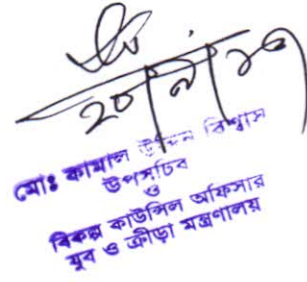 ২০/৯/২৩
মোঃ কামাল উদ্দিন বিশ্বাস
উপসচিব
ও
বিকল্প কাউন্সিল অফিসার
যুব ও ক্রীড়া মন্ত্রণালয়